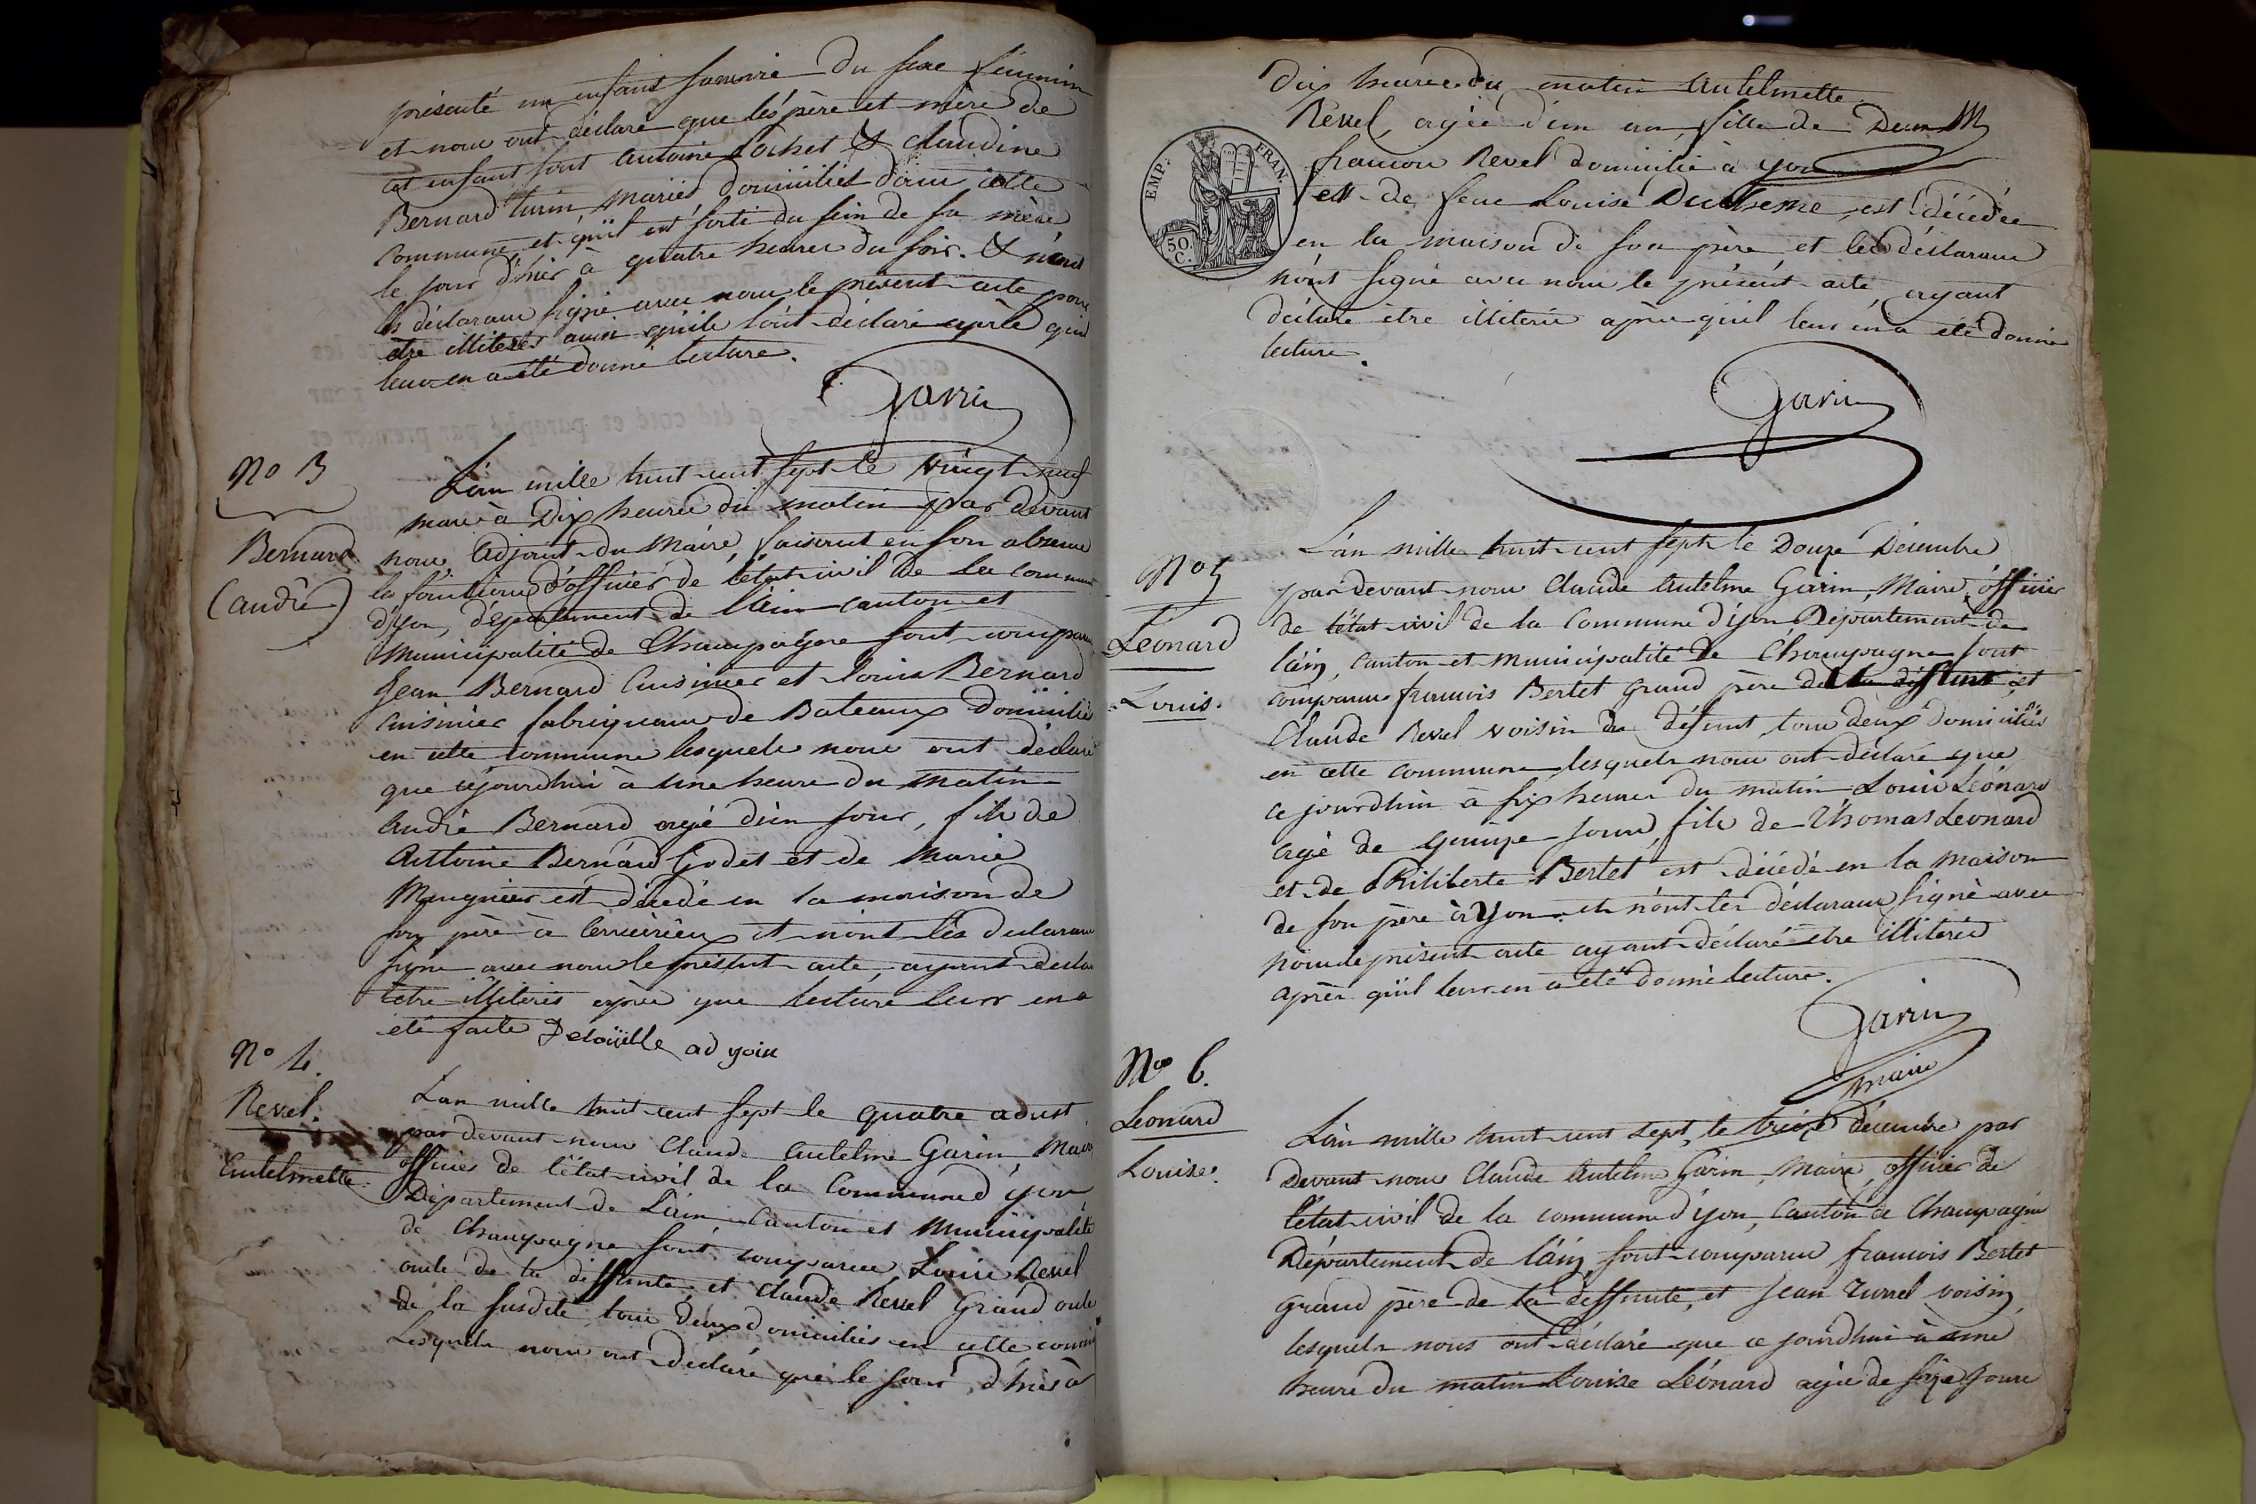 présenté un enfant du sexe féminin
et nous ont déclaré que les père et mère de
cet enfant sont antoine & Claudine
Bernard turin mariés domiciliés dans cette
commune, et qu'il est sorti du sein de sa mère
le jour d'hier à quatre heures du soir. & n'ont
les déclarans signé avec nous le présent acte pour
être illiterés ainsi qu'ils l'ont déclaré après qu'il
leur en a été donné lecture.
Garin
No 3
Bernard
(andré)
L'an mille huit cent sept le vingt neuf
mars à Dix heures du matin par devant
nous adjoint du Maire, faisant en son absence
les fonctions d'officier de l'état civil de la commune
d'yon, département de l'ain canton et
Municipalité de Champagne sont comparus
Jean Bernard Cuisinier et Louis Bernard
cuisinier fabriquans de Bateaux domiciliés
en cette commune lesquels nous ont déclaré
que cejourdhui à une heure du matin
André Bernard agé d'un jour, fils de
Antoine Bernard Godet et de Marie
Mugnier est décédé en la maison de
son père à et n'ont les declarans
signé avec nous le présent acte, ayant declaré
être illiterés après que lecture leur en a
été faite adjoin
No 4.
Revel.
Entelmette
L'an mille huit cent sept le quatre adust
par devant nous Claude antelme Garin Maire
officier de l'état civil de la Commune d'yon
Département de l'ain, Canton et Municipalité
de Champagne sont comparus Louis Revel
oncle de la deffunte, et Claude Revel Grand oncle
de la susdite tous deux domiciliés en cette commune
Lesquels nous ont déclaré que le jour d'hier à
EMP. FRAN.
50. C.
dix heures du matin Antelmette
Revel, agée d'un an, fille de
francois Revel domicilié à yon
et de feue Louise Duchesne, est décédée
en la maison de son père, et les déclarans
n'ont signé avec nous le présent acte, ayant
déclaré être illiterés après qu'il leur en a été donné
lecture.
Garin
No 5
Léonard
Louis.
L'an mille huit cent sept le Douze Decembre
par devant nous Claude Antelme Garin, Maire, officier
de l'état civil de la Commune d'yon Département de
l'ain, Canton et Municipalité de Champagne sont
comparus francois Bertet Grand père du défunt et
Claude Revel voisin du défunt, tous deux domiciliés
en cette commune, lesquels nous ont déclaré que
ce jourdhui à six heures du matin Louis Léonard
agé de quinze jours, fils de Thomas Leonard
et de Philiberte Bertet est décédé en la maison
de son père à Yon. et n'ont les déclarans signé avec
nous le présent acte ayant déclaré être illiterés
après qu'il leur en a été donné lecture.
Garin
maire
No 6.
Leonard
Louise.
L'an mille huit cent sept, le treize décembre par
devant nous Claude Antelme Garin, Maire, officier de
l'état civil de la commune d'yon, Canton de Champagne
Département de l'ain, sont comparus francois Bertet
grand père de la deffunte, et Jean voisin
lesquels nous ont déclaré que ce jourdhui à une
heure du matin Louise Léonard agée de seize jours